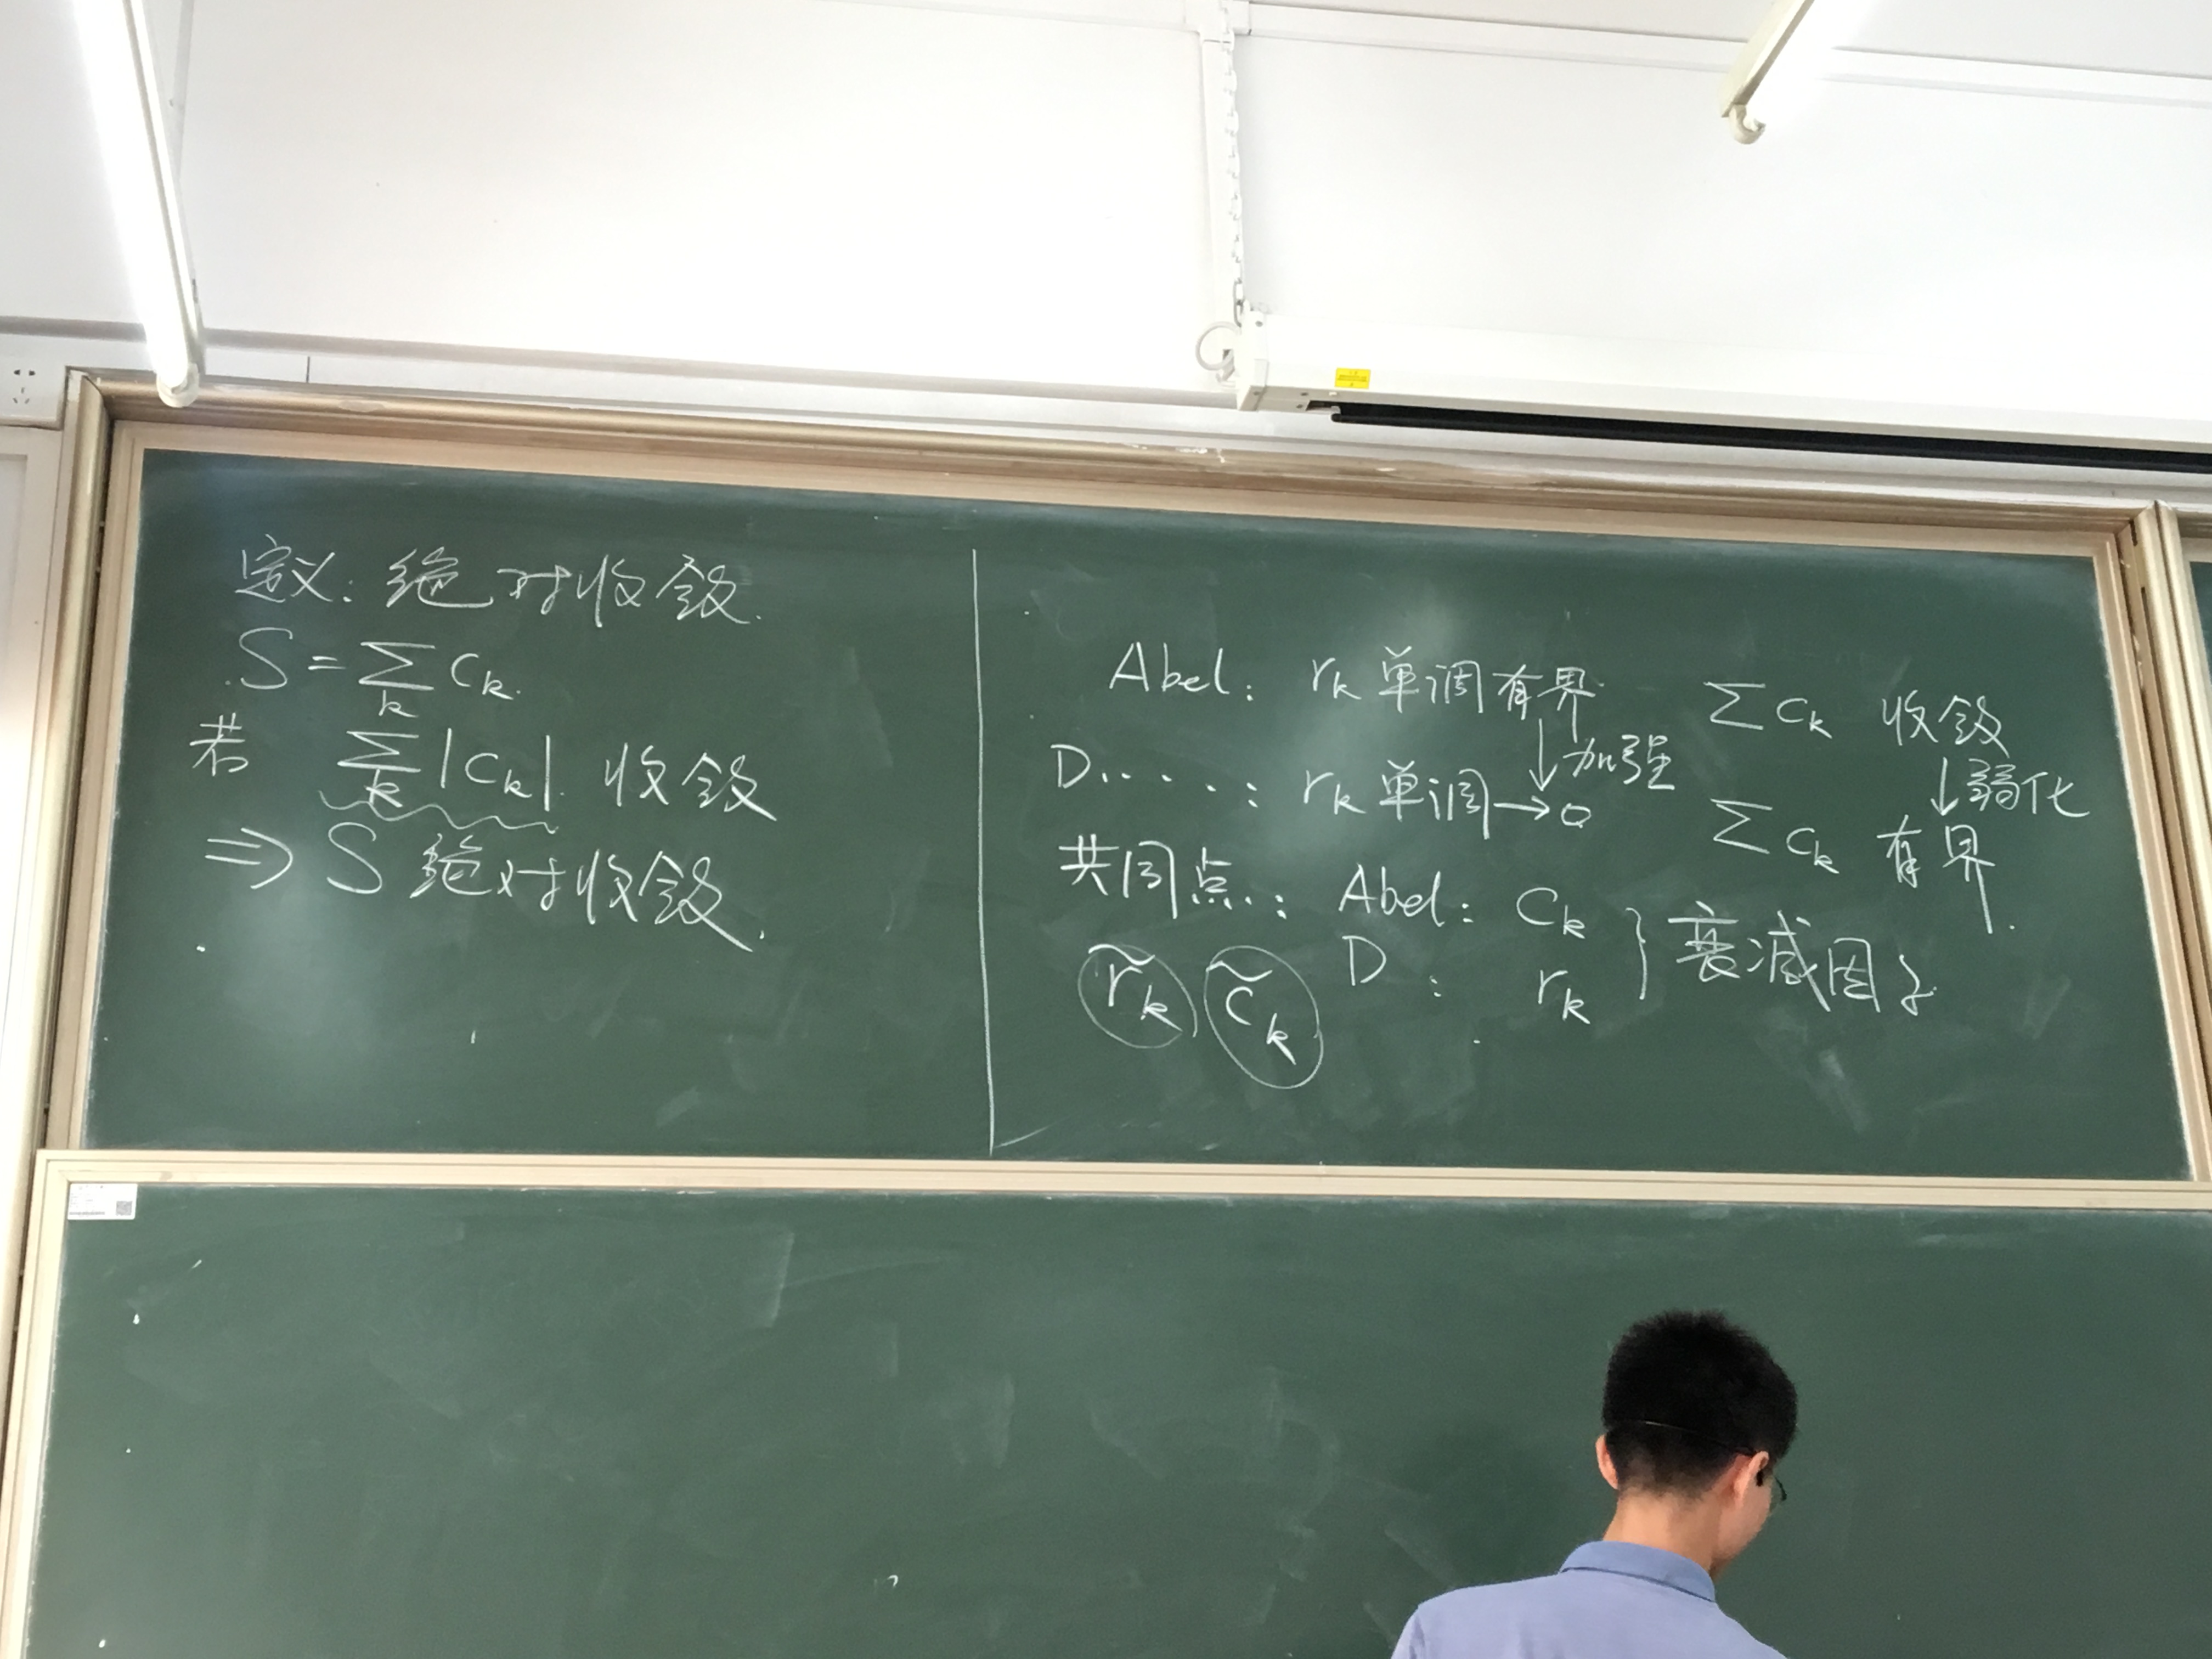 定义: 绝对收敛.
S = ∑_k c_k.
若 ∑_k |c_k| 收敛
⇒ S 绝对收敛.
Abel: r_k 单调有界 ∑ c_k 收敛
↓加强 ↓弱化
D.....: r_k 单调→0 ∑ c_k 有界.
共同点: Abel: c_k } 衰减因子
D: r_k
r̃_k c̃_k